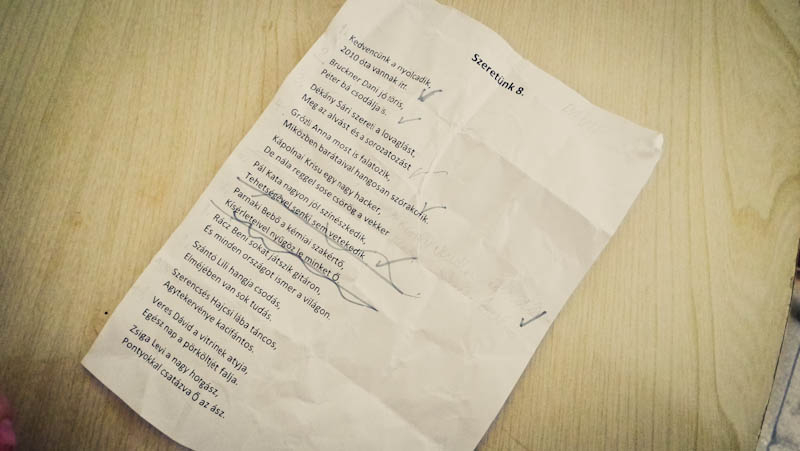 Szeretünk 8.
Kedvencünk a nyolcadik,
2010 óta vannak itt.
Bruckner Dani jó töris,
Péter bá csodálja is.
Dékány Sári szereti a lovaglást,
Meg az alvást és a sorozatozást
Grózli Anna most is falatozik,
Miközben barátaival hangosan szórakozik.
Kápolnai Krisu egy nagy hacker,
De nála reggel sose csörög a vekker
Pál Kata nagyon jól színészkedik,
Tehetségével senki sem vetekedik.
Parnaki Bebő a kémiai szakértő,
Kísérleteivel nyűgöz le minket Ő.
Rácz Beni sokat játszik gitáron,
És minden országot ismer a világon.
Szántó Lili hangja csodás,
Elméjében van sok tudás.
Szerencsés Hajcsi lába táncos,
Agytekervénye kacifántos.
Veres Dávid a vitrinek atyja,
Egész nap a pörköltjét falja.
Zsiga Levi a nagy horgász,
Pontyokkal csatázva Ő az ász.